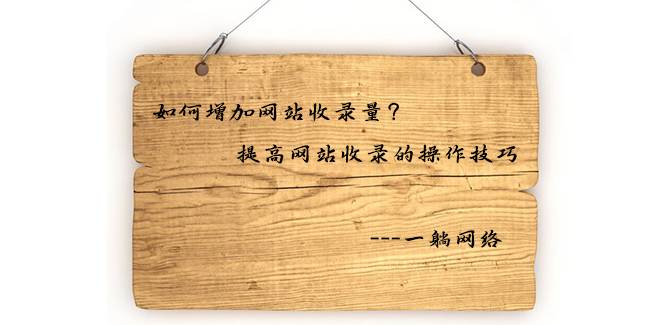 如何增加网站收录量？
提高网站收录的操作技巧
---一躺网络